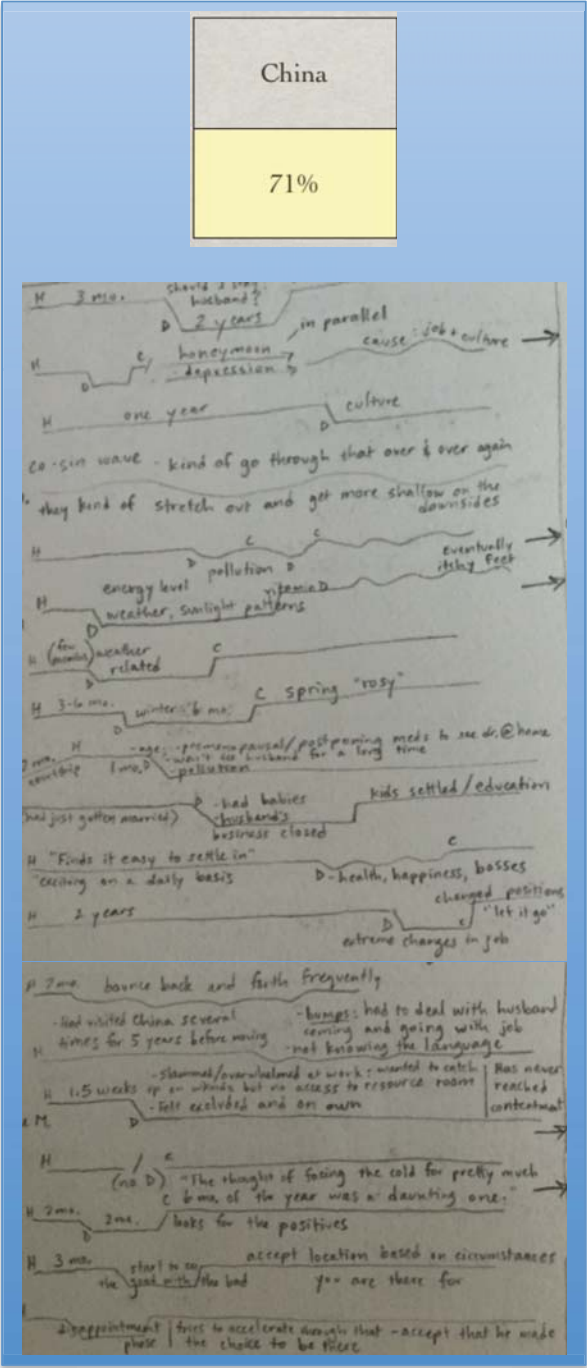 China
71%
H 3 mo.
husband?
D 2 years
in parallel
H D C honeymoon
depression
cause: job + culture
H one year D culture
co-sin wave - kind of go through that over & over again
they kind of stretch out and get more shallow on the
downsides
H D C D C
pollution
eventually
itchy feet
energy level
vitamin D
H weather, sunlight patterns
D
H (few months) weather
related
D C
H 3-6 mo. winter: 6 mo. C spring "rosy"
D
H 1 mo. D -age: -premenopausal/postponing meds to see dr.@home
-won't see husband for a long time
-pollution
had just gotten married)
D -had babies
-husband's
business closed
kids settled/education
H "Finds it easy to settle in" C
"exciting on a daily basis D-health, happiness, bosses
H 2 years D
changed positions
"let it go"
extreme changes in job
H 2 mo. bounce back and forth frequently
-Had visited China several
times for 5 years before moving
-bumps: had to deal with husband
coming and going with job
-not knowing the language
H
-slammed/overwhelmed at work: wanted to catch
H 1.5 weeks up on whends but no access to resource room
D -Felt excluded and on own
Has never
reached
contentment
M
H / C
(no D) -"The thought of facing the cold for pretty much
6 mo. of the year was a daunting one."
H 2mo. D 2mo. / C looks for the positives
H 3 mo. start to
the good with/the bad
accept location based on circumstances
you are there for
disappointment | tries to accelerate through that -accept that he made
phase | the choice to be there